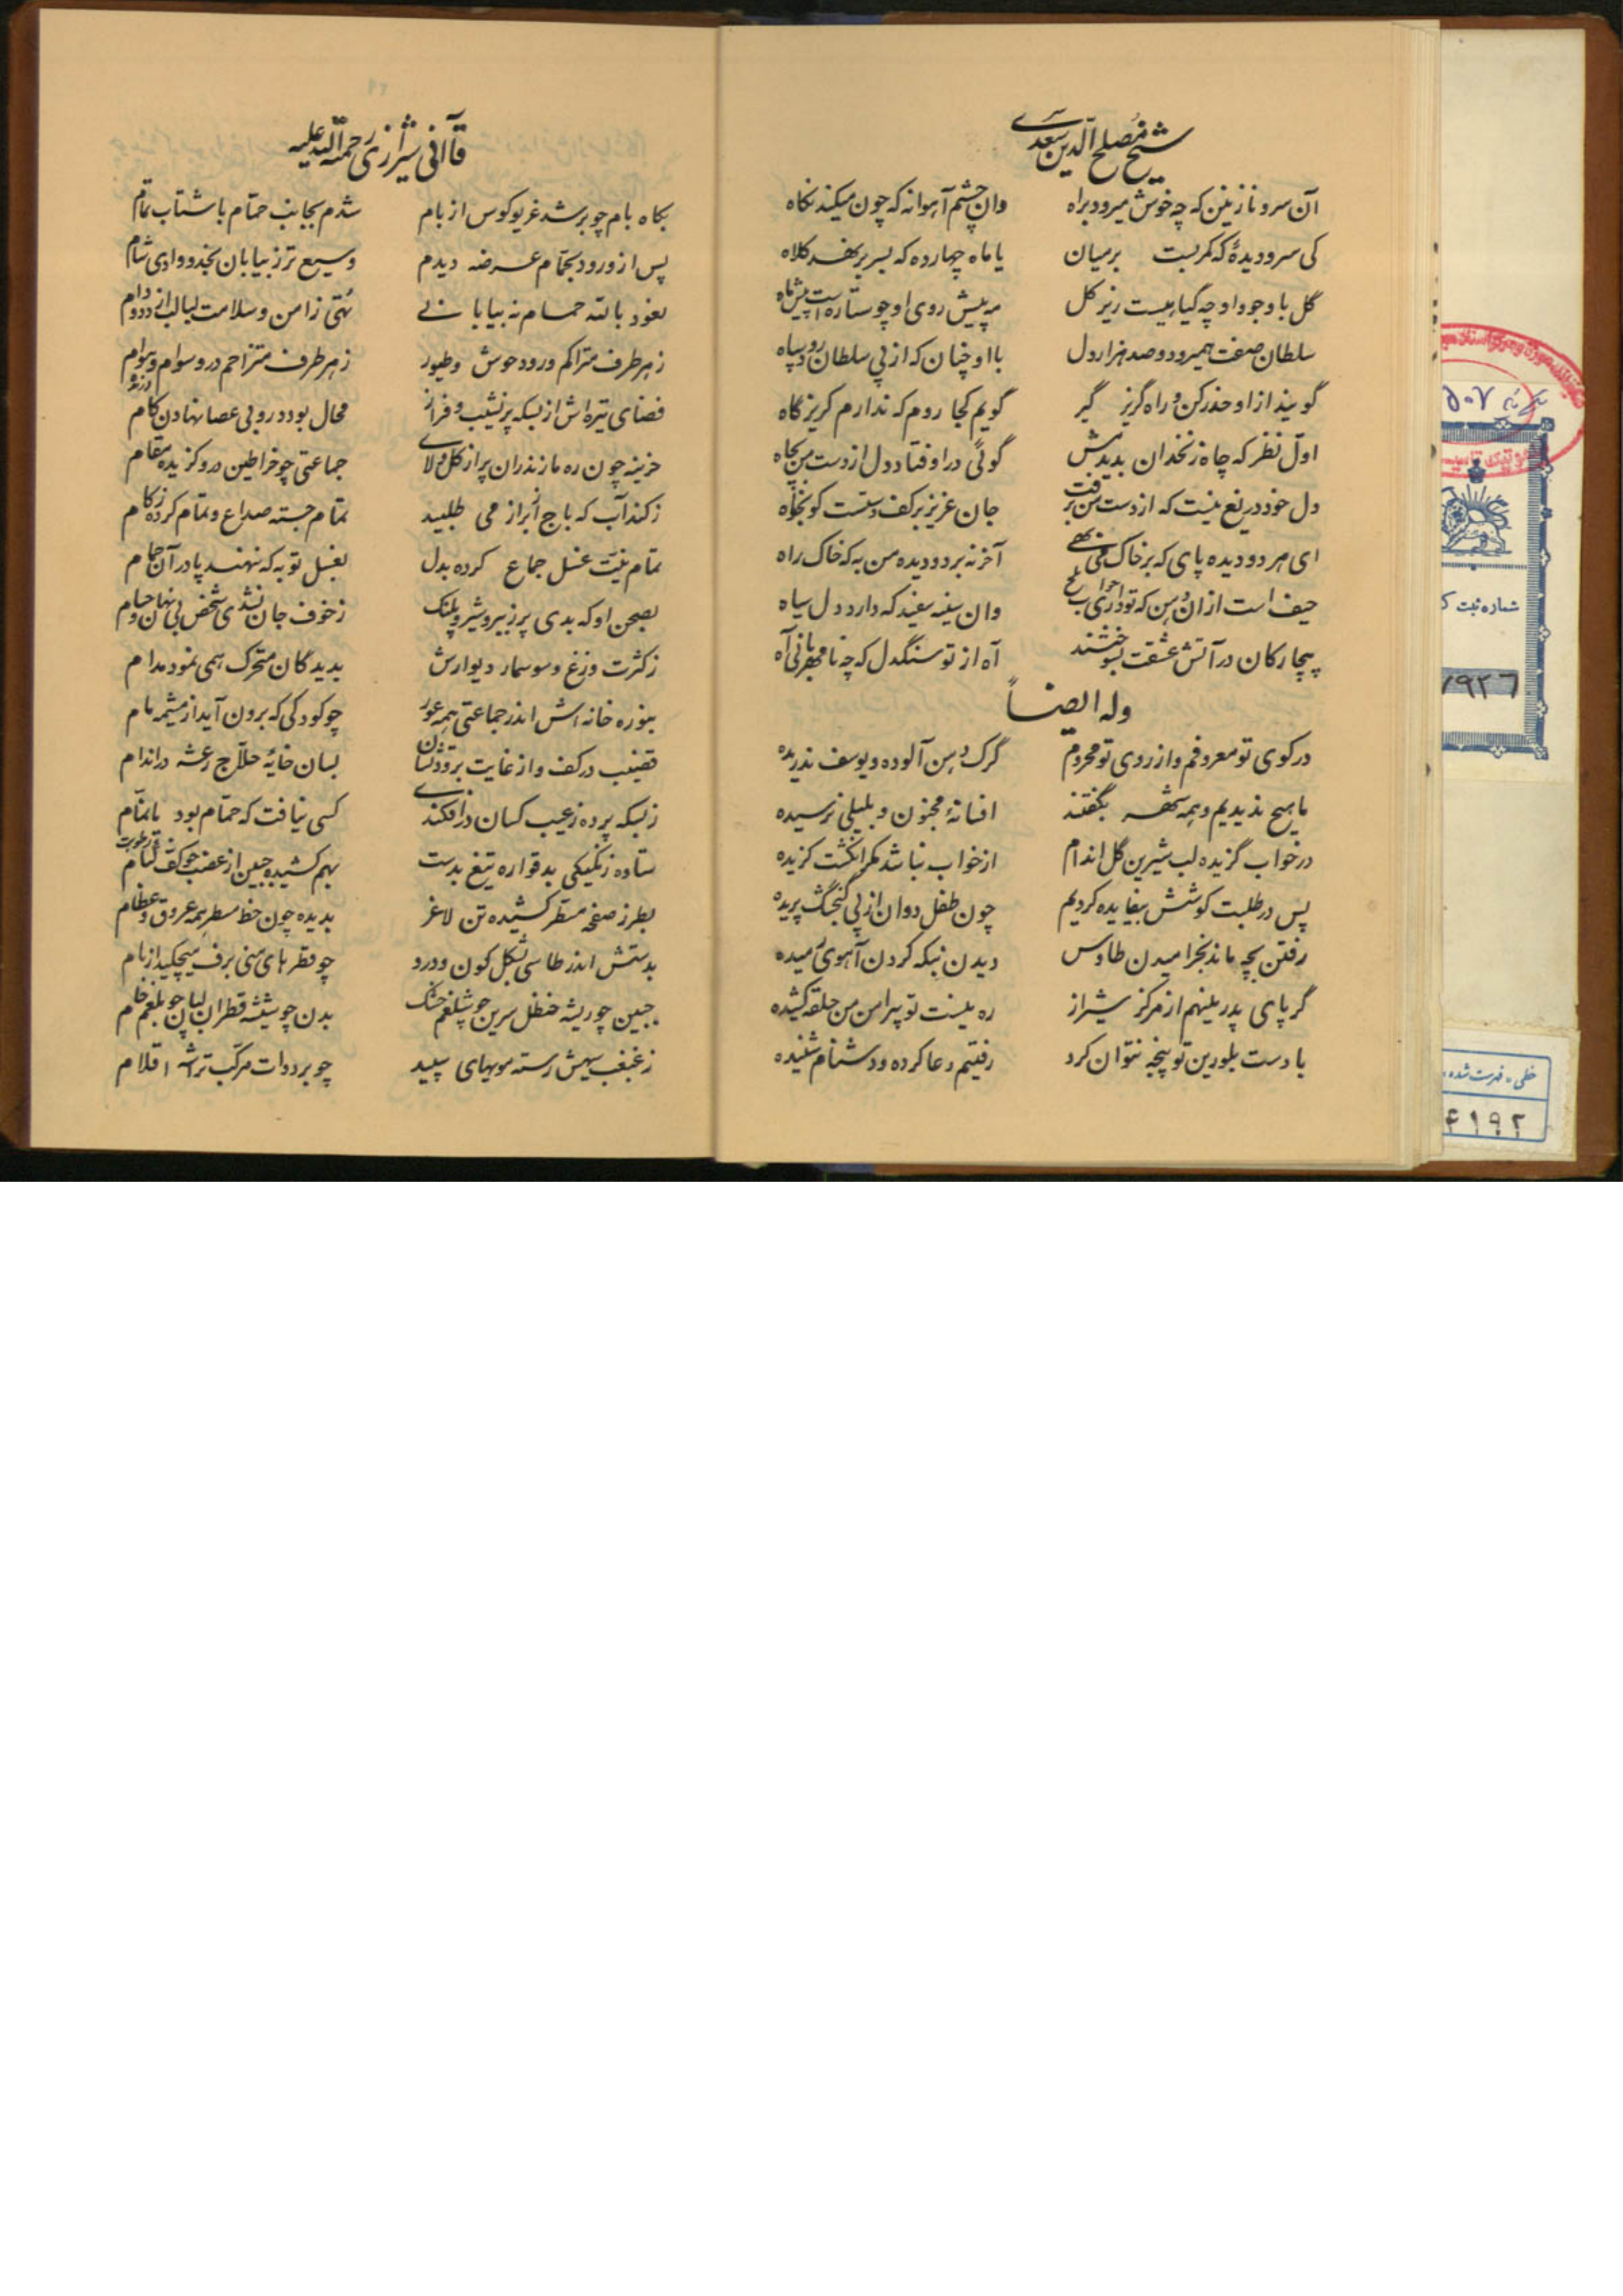 شیخ مصلح الدین سعدی
آن سرو نازنین که چه خوش میرود براه وان چشم آهوانه که چون میکند نکاه
کی سرو دیدهٔ که کمر بست بر میان یا ماه چهارده که بسر بر نهد کلاه
گل با وجود او چه گیاهیست زیر کل مه پیش روی او چو ستاره است پیش ماه
سلطان صفت همیرود و صد هزار دل با او چنان که از پی سلطان رود سپاه
گویند از او حذر کن و راه گریز گیر گویم کجا روم که ندارم کریزگاه
اول نظر که چاه زنخدان بدیدمش گوئی در اوفتاد دل از دست من بچاه
دل خود دریغ نیست که از دست من برفت جان عزیز بر کف دستست کو بخواه
ای هر دو دیده پای که بر خاک می نهی آخر نه بر دو دیده من به که خاک راه
حیف است از ان دهن که تو داری جواب تلخ وان سینه سفید که دارد دل سیاه
بیچارکان در آتش عشقت بسوختند آه از تو سنگدل که چه نامهربانی آه
وله ایضاً
در کوی تو معروفم و از روی تو محروم گرک دهن آلوده و یوسف ندریده
ما هیچ ندیدیم و همه شهر بگفتند افسانهٔ مجنون و بلیلی نرسیده
در خواب گزیده لب شیرین گل اندام از خواب نباشد مکر انکشت کزیده
پس در طلبت کوشش بیفایده کردیم چون طفل دوان از پی گنجشک پریده
رفتن بچه ماند بخرامیدن طاوس دیدن بچکه کردن آهوی رمیده
گر پای بدر مینهم از مرکز شیراز ره نیست تو پیرامن من حلقه کشیده
با دست بلورین تو پنجه نتوان کرد رفتیم دعا کرده و دشنام شنیده
قاآنی شیرازی رحمة الله علیه
بکاه بام چو بر شد غریو کوس از بام شدم بجانب حمام با شتاب تمام
پس از ورود بحمام عرضه دیدم وسیع تر ز بیابان نجد و وادی شام
نعوذ بالله حمام نه بیابانی تهی ز امن و سلامت لبالب از دد و دام
ز هر طرف متراکم درو وحوش و طیور ز هر طرف متزاحم درو سوام و هوام
فضای تیره اش از بسکه پر نشیب و فراز محال بود درو بی عصا نهادن کام
خزینه چون ره مازندران پر از کل و لای جماعتی چو خراطین درو کزیده مقام
ز کند آب که باج از براز می طلبید تمام جسته صداع و تمام کرده زکام
تمام نیت غسل جماع کرده بدل بغسل توبه که ننهند پا در آن حمام
بصحن او که بدی پر ز ببر و شیر و پلنک ز خوف جان نشدی شخص بی نهان و حسام
ز کثرت وزغ و سوسمار دیوارش بدیدگان متحرک همی نمود مدام
بنوره خانه اش اندر جماعتی همه عور چو کودکی که برون آید از مشیمه مام
قضیب در کف و از غایت برودتشان بسان خایهٔ حلاج رعشه در اندام
ز بسکه پرده ز عیب کسان در افکندی کسی نیافت که حمام بود یا نمام
ستاده زنگیکی بدقواره تیغ بدست بهم کشیده جبین از غضب چو
بطرز صفحه مسطر کشیده تن لاغر بدیده چون خط مسطر همه عروق و عظام
بدستش اندر طاسی بشکل کون و درو چو قطرهای منی برف میچکید از بام
جبین چو ریشه حنظل سرین چو شلغم خشک بدن چو شیشه قطران لبان چو بلغم خام
ز غبغب سیهش رسته مویهای سپید چو بر دوات مرکب تراشه اقلام
۵۰۷
شماره ثبت ک
۷۹۲۶
خطی - فهرست شده
۴۱۹۲